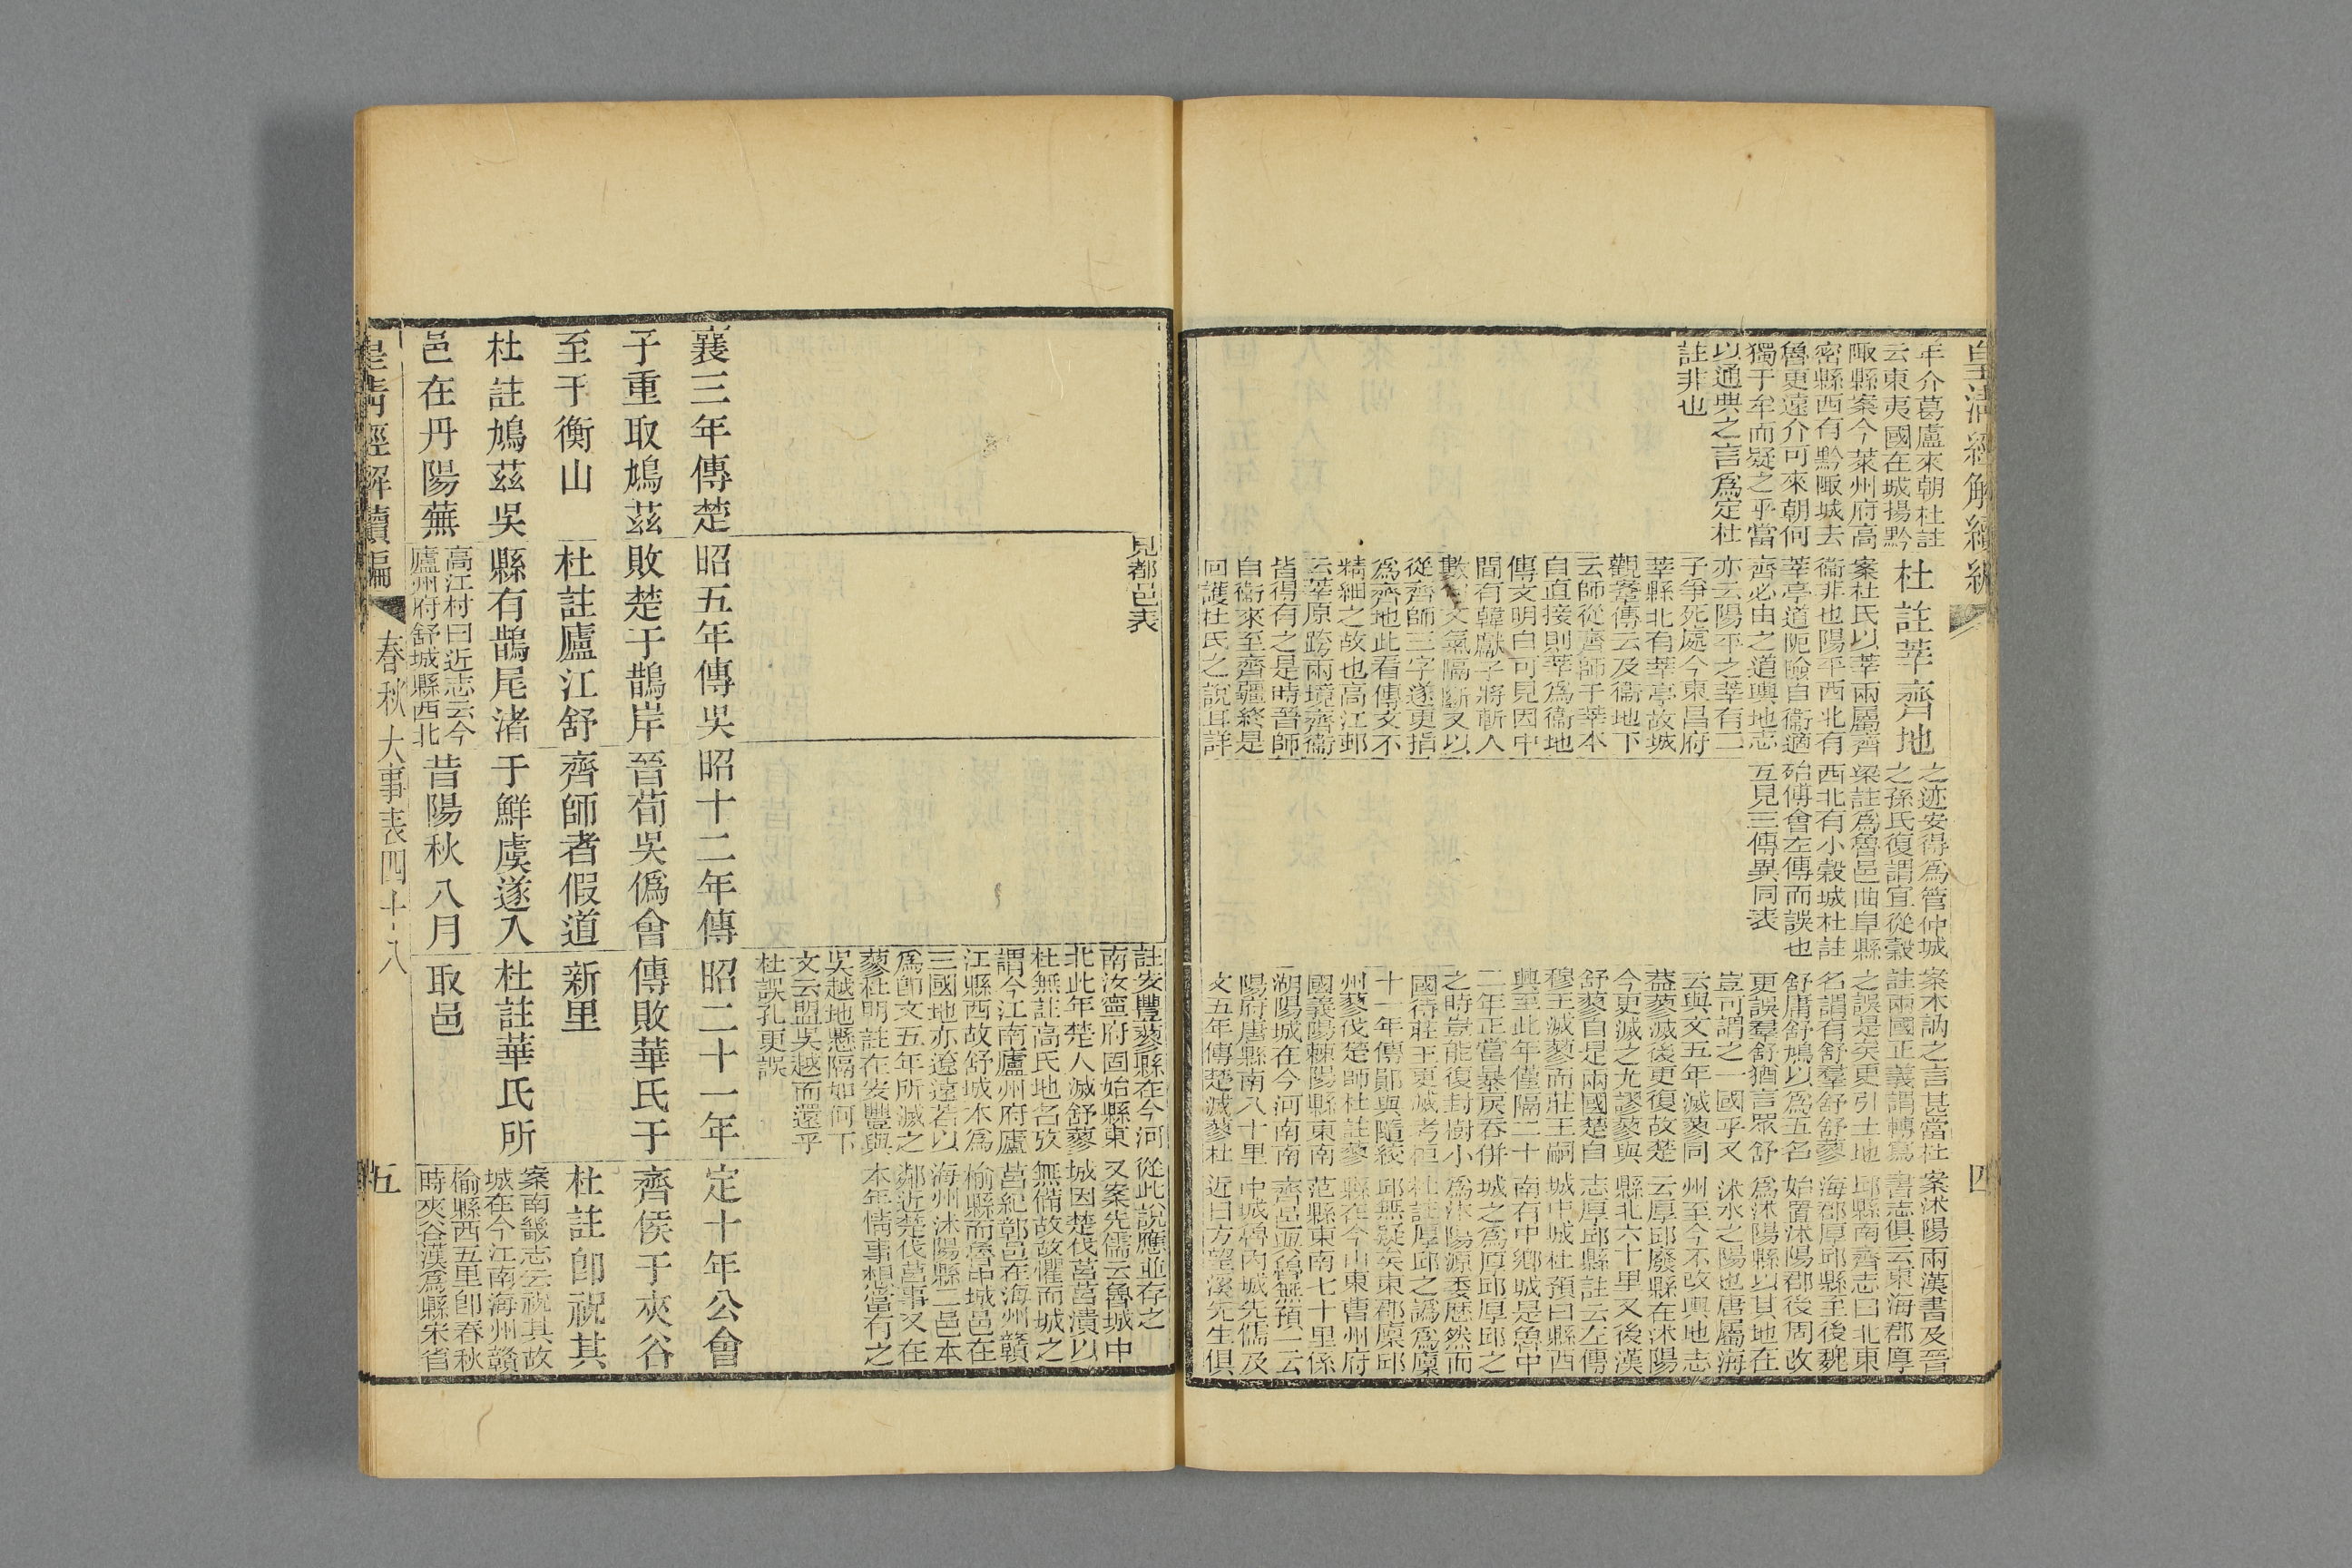 皇清經解續編
年介葛盧來朝杜註
云東夷國在城揚黔
陬縣案今萊州府高
密縣西有黔陬城去
魯更遠介可來朝何
獨于牟而疑之乎當
以通典之言爲定杜
註非也
杜註莘齊地
案杜氏以莘兩屬齊
衞非也陽平西北有
莘亭道阨險自衞適
齊必由之道輿地志
亦云陽平之莘有二
子爭死處今東昌府
莘縣北有莘亭故城
觀鞌傳云及衞地下
云師從齊師于莘本
自直接則莘爲衞地
傳文明白可見因中
間有韓獻子將斬人
數文氣隔斷又以
從齊師三字遂更指
爲齊地此看傳文不
精細之故也高江邨
云莘原跨兩境齊衞
皆得有之是時晉師
自衞來至齊疆終是
回護杜氏之說耳詳
之迹安得爲管仲城
之孫氏復謂宜從穀
梁註爲魯邑曲阜縣
西北有小穀城杜註
殆傅會左傳而誤也
互見三傳異同表
案木訥之言甚當杜
註兩國正義謂轉寫
之誤是矣更引土地
名謂有舒羣舒舒蓼
舒庸舒鳩以爲五名
更誤羣舒猶言眾舒
豈可謂之一國乎又
云與文五年滅蓼同
葢蓼滅後更復故楚
今更滅之尤謬蓼與
舒蓼自是兩國楚自
穆王滅蓼而莊王嗣
興至此年僅隔二十
二年正當暴戾吞併
之時豈能復封樹小
國待莊王更滅考桓
十一年傳鄖與隨絞
州蓼伐楚師杜註蓼
國義陽棘陽縣東南
湖陽城在今河南南
陽府唐縣南八十里
文五年傳楚滅蓼杜
案沭陽兩漢書及晉
書志俱云東海郡厚
邱縣南齊志曰北東
海郡厚邱縣至後魏
始置沭陽郡後周改
爲沭陽縣以其地在
沭水之陽也唐屬海
州至今不改輿地志
云厚邱廢縣在沭陽
縣北六十里又後漢
志厚邱縣註云左傳
城中城杜預曰縣西
南有中鄉城是魯中
城之爲厚邱厚邱之
爲沭陽源委歷然而
杜註厚邱之譌爲廩
邱無疑矣東郡廩邱
縣在今山東曹州府
范縣東南七十里係
齊邑與魯無預一云
中城魯內城先儒及
近日方望溪先生俱
四
見都邑表
註安豐蓼縣在今河
南汝寧府固始縣東
北此年楚人滅舒蓼
杜無註高氏地名攷
謂今江南廬州府廬
江縣西故舒城本爲
三國地亦遼遠若以
爲卽文五年所滅之
蓼杜明註在安豐與
吳越地懸隔如何下
文云盟吳越而還乎
杜誤孔更誤
從此說應並存之
又案先儒云魯城中
城因楚伐莒莒潰以
無備故故懼而城之
莒紀鄣邑在海州贛
榆縣而魯中城邑在
海州沭陽縣二邑本
鄰近楚伐莒事又在
本年情事想當有之
襄三年傳楚
子重取鳩茲
至于衡山
杜註鳩茲吳
邑在丹陽蕪
昭五年傳吳
敗楚于鵲岸
杜註廬江舒
縣有鵲尾渚
高江村曰近志云今
廬州府舒城縣西北
昭十二年傳
晉荀吳僞會
齊師者假道
于鮮虞遂入
昔陽秋八月
昭二十一年
傳敗華氏于
新里
杜註華氏所
取邑
定十年公會
齊侯于夾谷
杜註卽祝其
案南畿志云祝其故
城在今江南海州贛
榆縣西五里卽春秋
時夾谷漢爲縣宋省
皇清經解續編
春秋大事表四十八
五